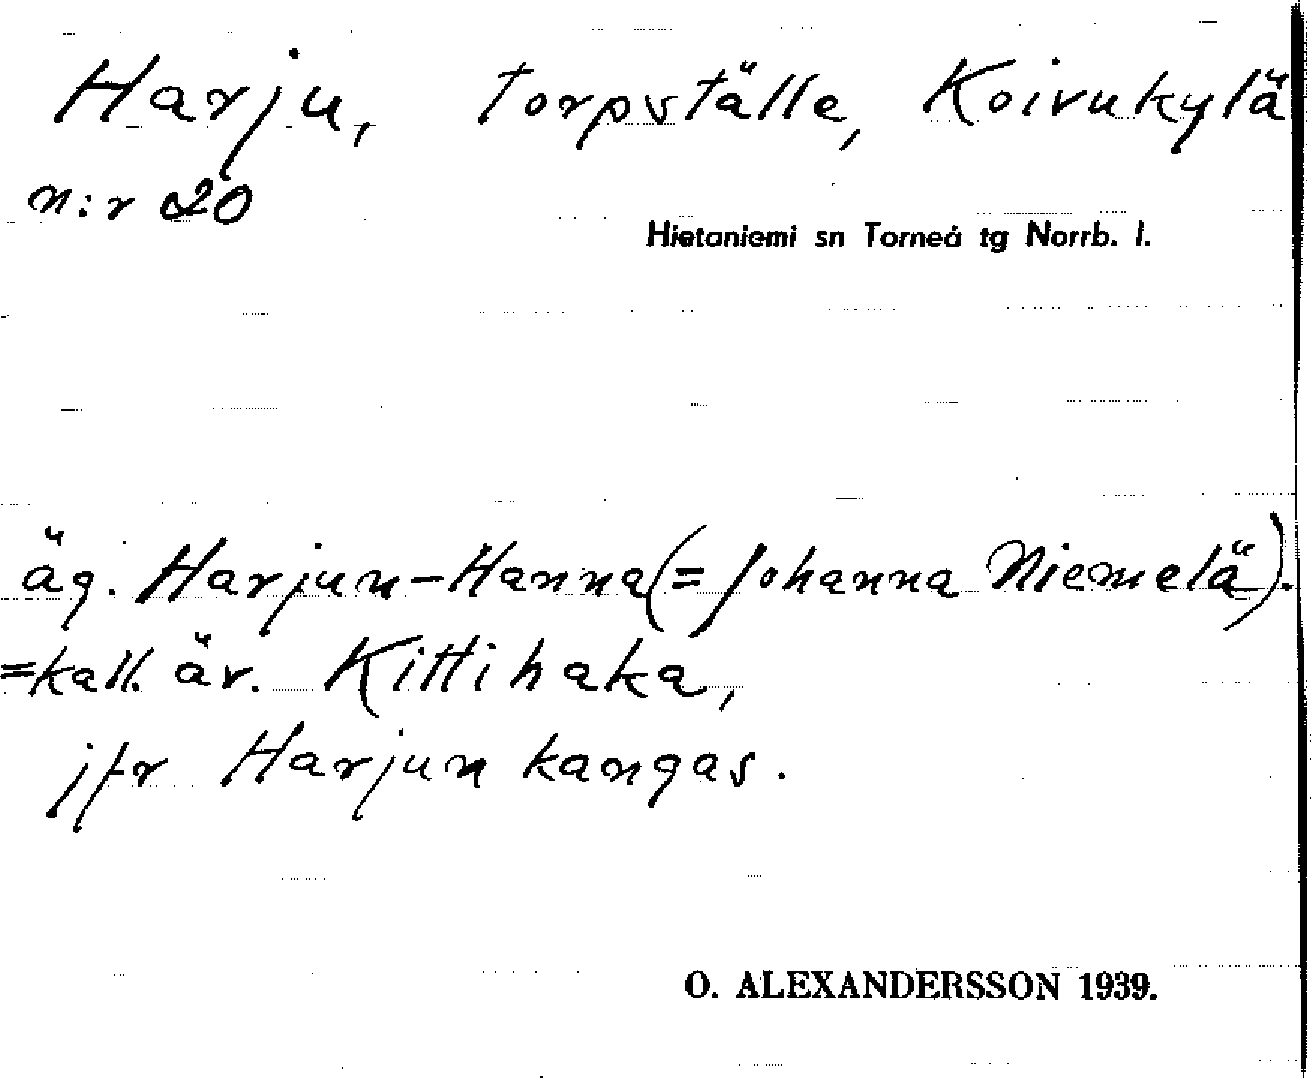 Harju, torpställe, Koivukylä
n:r 20
Hietaniemi sn Torneå tg Norrb. l.
äg. Harjun-Hanna (= Johanna Niemelä).
=kall. äv. Kittihaka,
jfr Harjun kangas.
O. ALEXANDERSSON 1939.